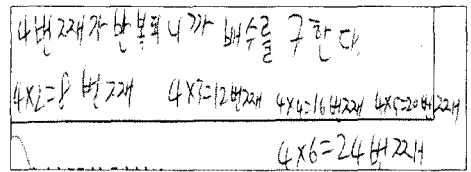 4번째가 반복되니까 배수를 구한다
4×2=8 번째 4×3=12번째 4×4=16번째 4×5=20번째
4×6=24번째